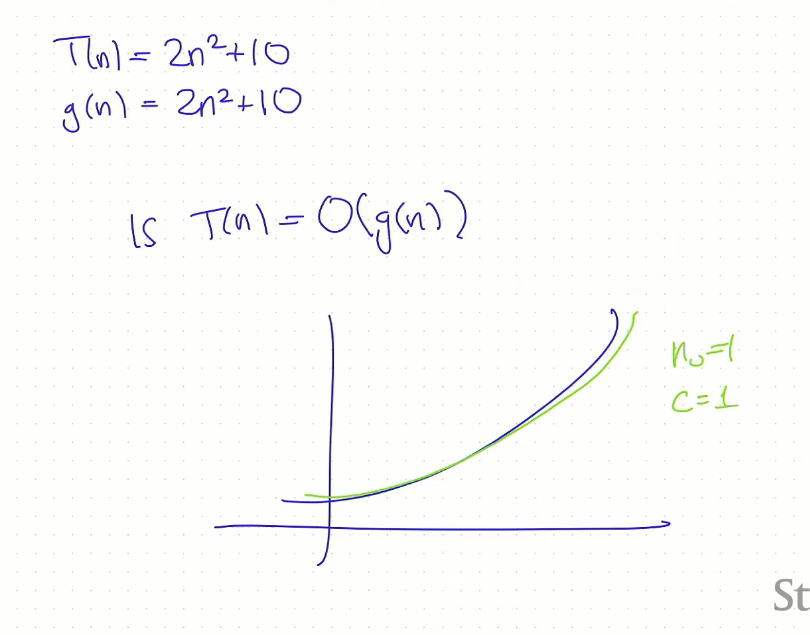 T(n) = 2n²+10
g(n) = 2n²+10
Is T(n) = O(g(n))
n₀=1
C=1
St